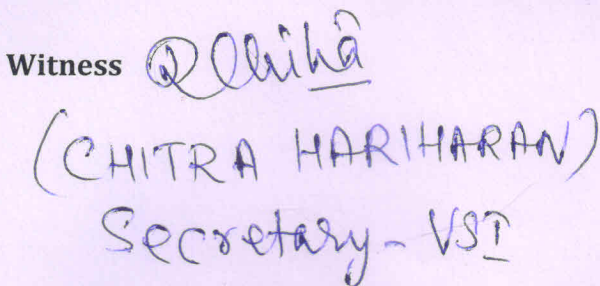 Witness
(CHITRA HARIHARAN)
Secretary - VSI